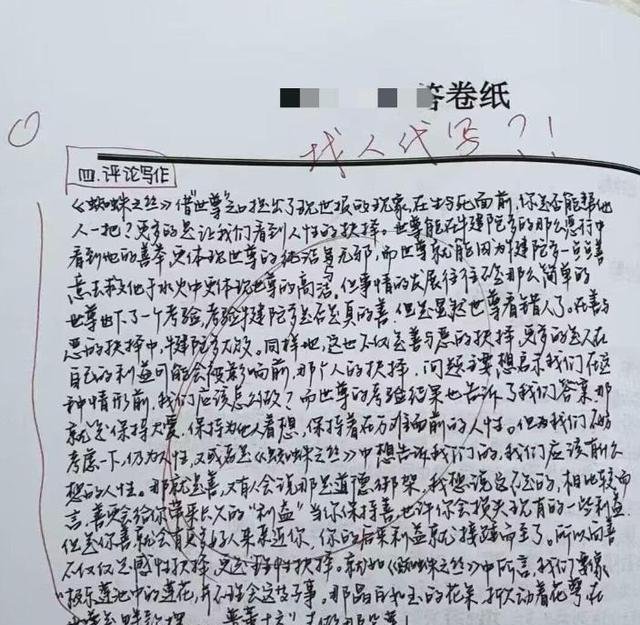 答卷纸
找人代写?!
四.评论写作
《蜘蛛之丝》借"世尊"之口提出了现世报的现象,在生与死面前,你是否能帮他
人一把?更多的是让我们看到人性的抉择。世尊能在犍陀多的那么恶行中
看到他的善举,更体现世尊的纯洁与无邪,而世尊就能因为犍陀多一的善
意去救他于水火中更体现世尊的高洁。但事情的发展往往不会那么简单的
世尊也下了一个考验,考验犍陀多是否是真的善,但是显然世尊看错人了。在善与
恶的抉择中,犍陀多大败。同样地,这也不仅是善与恶的抉择,更多的是人在
自己的利益可能会被影响前,那个人的抉择,问题主要想启示我们在这
种情形前,我们应该怎么做?而世尊的考验结果也告诉了我们答案,那
就是保持大爱,保持为他人着想,保持着在万难面前的人性。但为我们不妨
考虑一下,仍为人性,又或者是《蜘蛛之丝》中想告诉我们的,我们应该有什么
想的人性。那就是善,又有人会说那是道德绑架,我想说是否定的,相比较而
言,善更会给你带来长久的"利益"当你保持善也许你会损失现有的一些利益
但是你善就会有更多好人来亲近你,你的后来利益就接踵而至了。所以向善
不仅仅是感性抉择,更是理性抉择。就如《蜘蛛之丝》中所言,我们要像
"极乐莲池中的莲花,并不理会这等事。那晶白如玉的花朵,掀动着花萼在